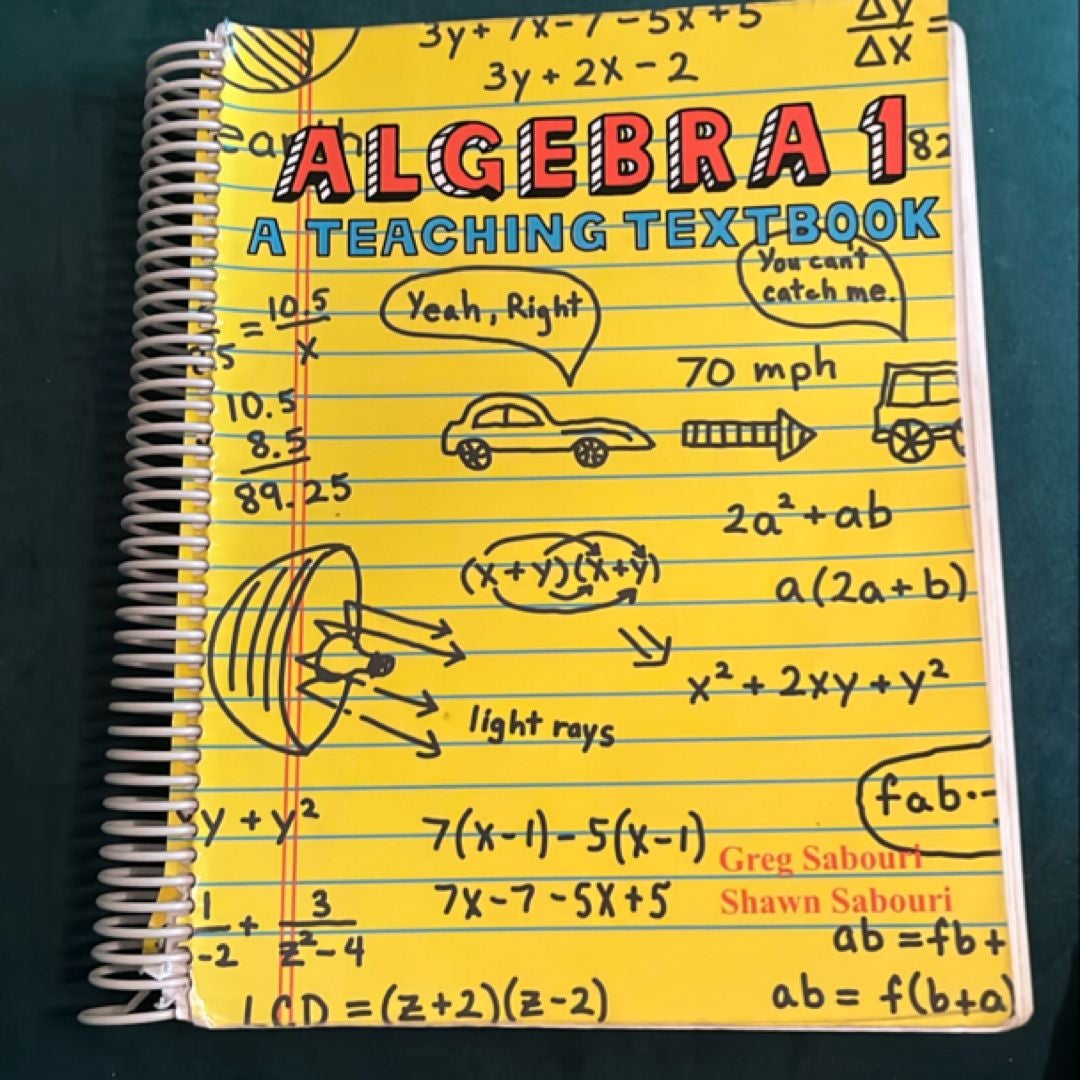 3y + 7x - 7 - 5x + 5
Δy
Δx =
3y + 2x - 2
earth
ALGEBRA 1
82
A TEACHING TEXTBOOK
You can't
catch me.
Yeah, Right
5 = 10.5
x
70 mph
10.5
8.5
89.25
2a² + ab
(x + y)(x + y)
a(2a + b)
x² + 2xy + y²
light rays
fab
y + y²
7(x-1) - 5(x-1)
Greg Sabouri
7x - 7 - 5x + 5
Shawn Sabouri
1
-2
+
3
z² - 4
ab = fb +
LCD = (z+2)(z-2)
ab = f(b+a)